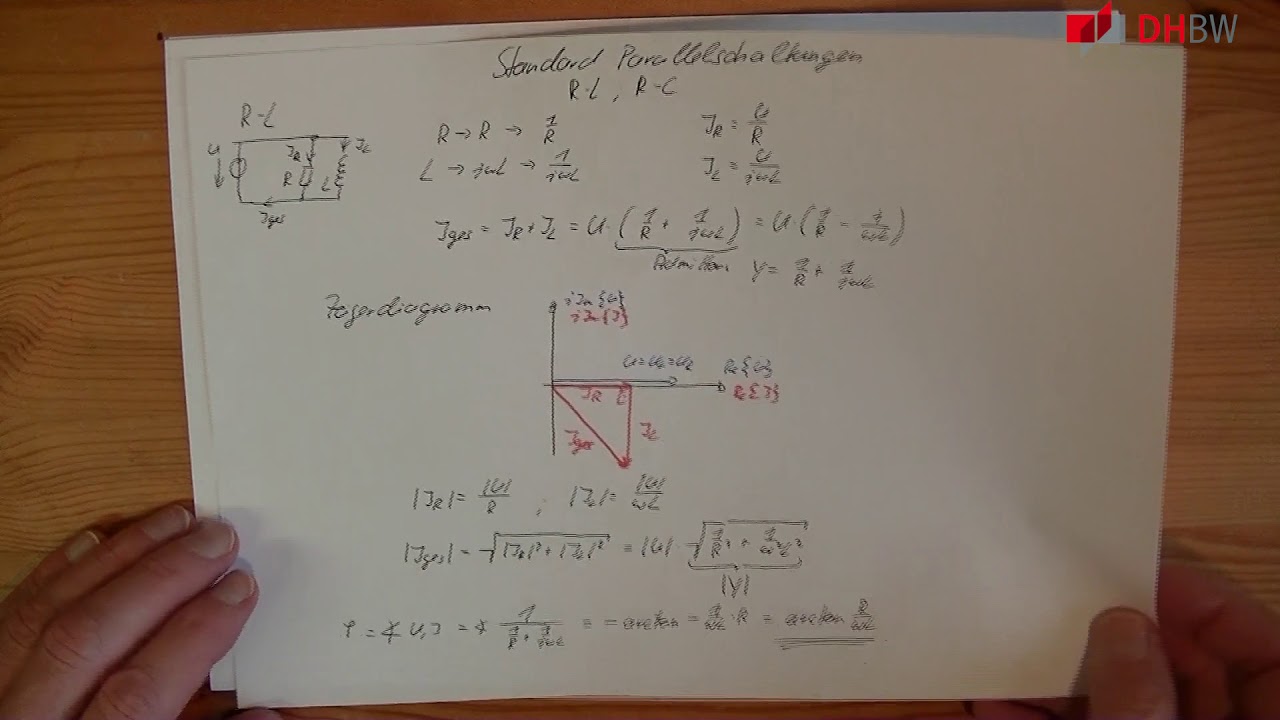 DHBW
Standard Parallelschaltungen
R-L, R-C
R-L
U
I_R
I_L
R
L
I_ges
R → R → 1/R
I_R = U/R
L → jωL → 1/jωL
I_L = U/jωL
I_ges = I_R + I_L = U · (1/R + 1/jωL) = U · (1/R - 1/ωL)
Admittanz Y = 1/R + 1/jωL
Zeigerdiagramm
jIm{U}
jIm{I}
Re{U}
Re{I}
I_R
I_L
I_ges
|I_R| = |U|/R ; |I_L| = |U|/ωL
|I_ges| = √(|I_R|² + |I_L|²) = |U| · √(1/R² + 1/ω²L²)
|Y|
φ = ∢ U,I = ∢ 1/(1/R + 1/jωL) = - arctan - 1/ωL · R = arctan R/ωL